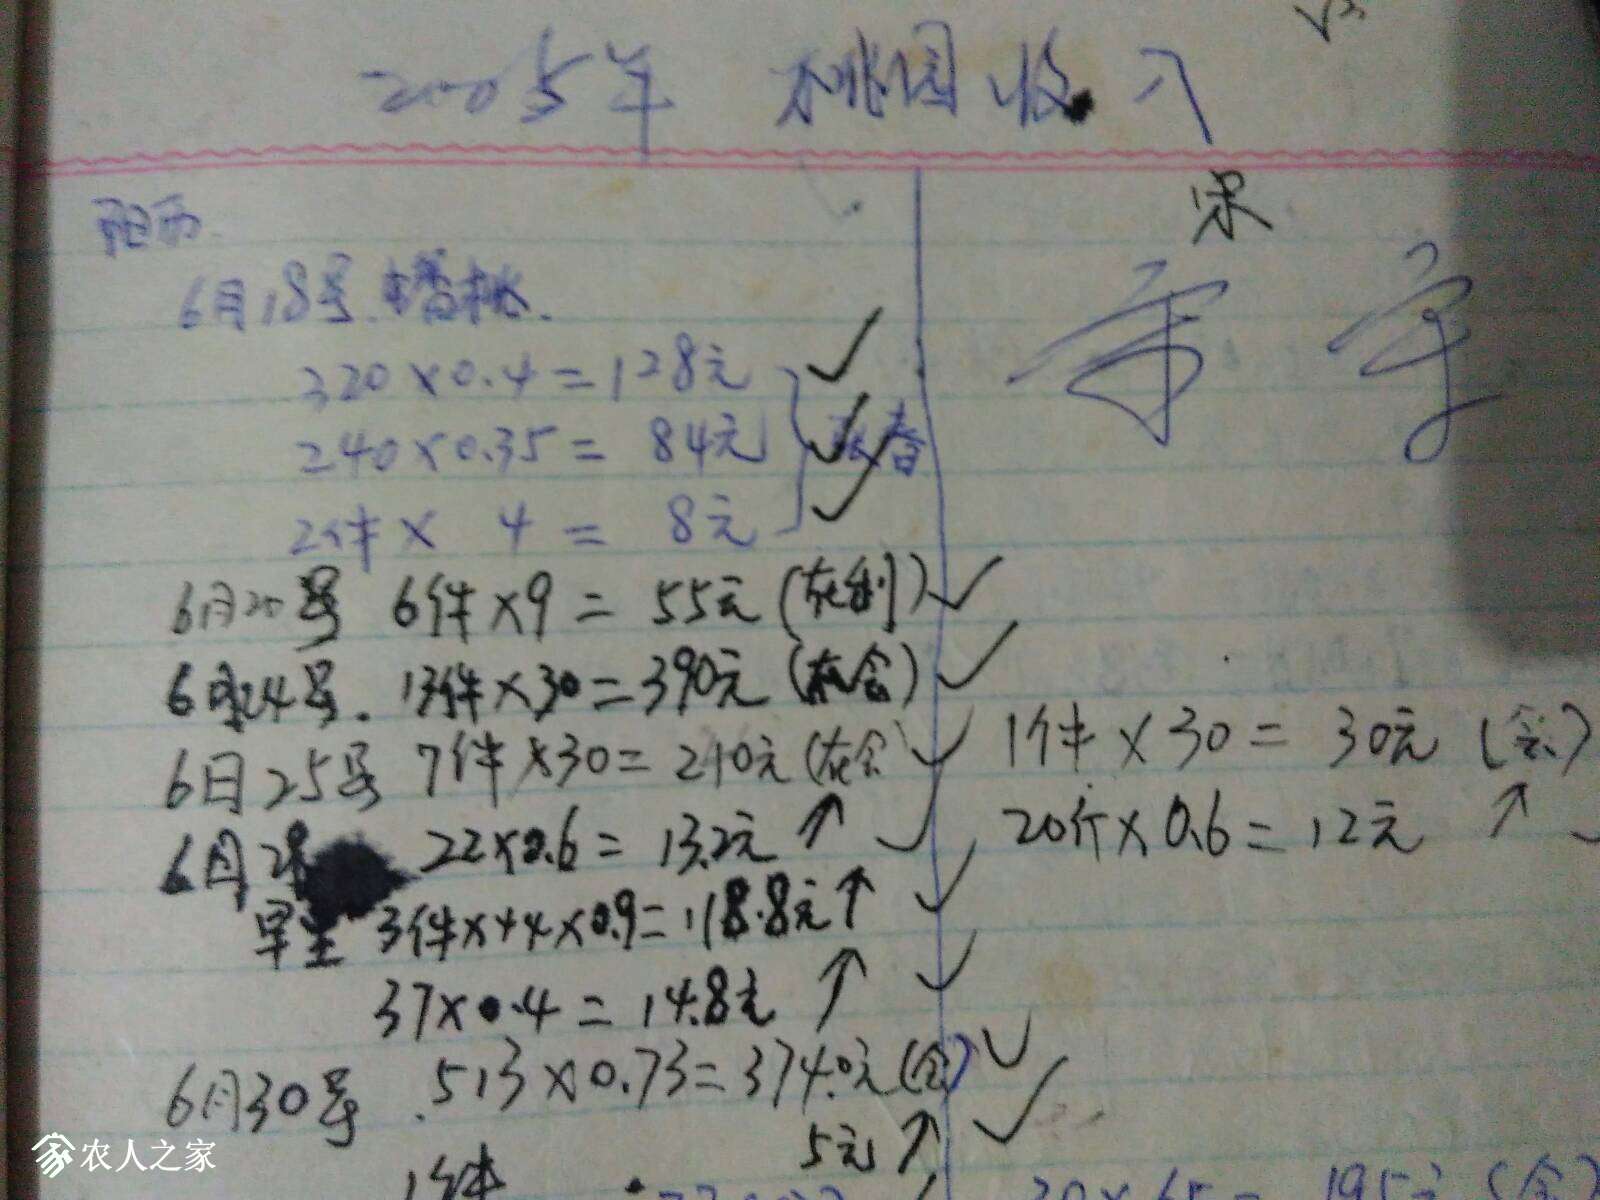 2005年 桃园收入
6月18号.蟠桃.
320×0.4=128元
240×0.35= 84元 春
2件× 4 = 8元
6月20号 6件×9 = 55元 (
6月24号. 13件×30=390元 (会)
6月25号 7件×30=210元 (会
6月2 22×0.6=13.2元↑
早 3件×44×0.9=118.8元↑
37×0.4=14.8元 ↑
6月30号 513×0.73=374.0元(会)
5元↑
1件
宋
1件×30= 30元 (会)
20斤×0.6=12元 ↑
30×65= 195元(会)
农人之家